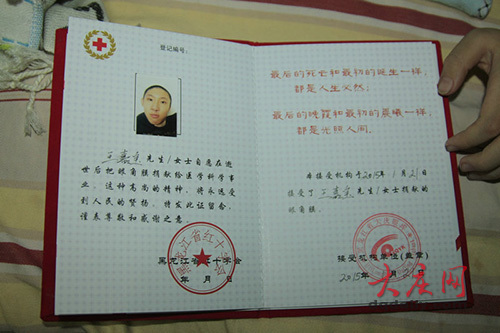 登记编号:
先生/女士自愿在逝
世后把眼角膜捐献给医学科学事
业，这种高尚的精神，将永远受
到人民的赞扬，特发此证留念，
谨表尊敬和感谢之意。
黑龙江省红十字会
年 月 日
最后的死亡和最初的诞生一样，
都是人生必然；
最后的晚霞和最初的晨曦一样，
都是光照人间。
本接受机构于2015年1月21日
接受了 先生/女士捐献的
眼角膜。
接受机构单位(盖章)
2015年 月 日
大庆网